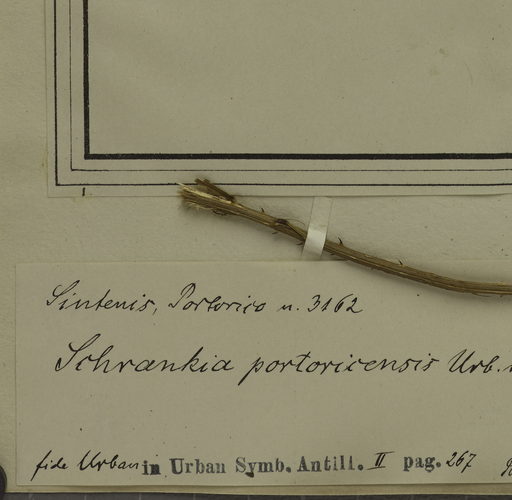 Sintenis, Portorico n. 3162
Schrankia portoricensis Urb.
fide Urban in Urban Symb. Antill. II pag. 267